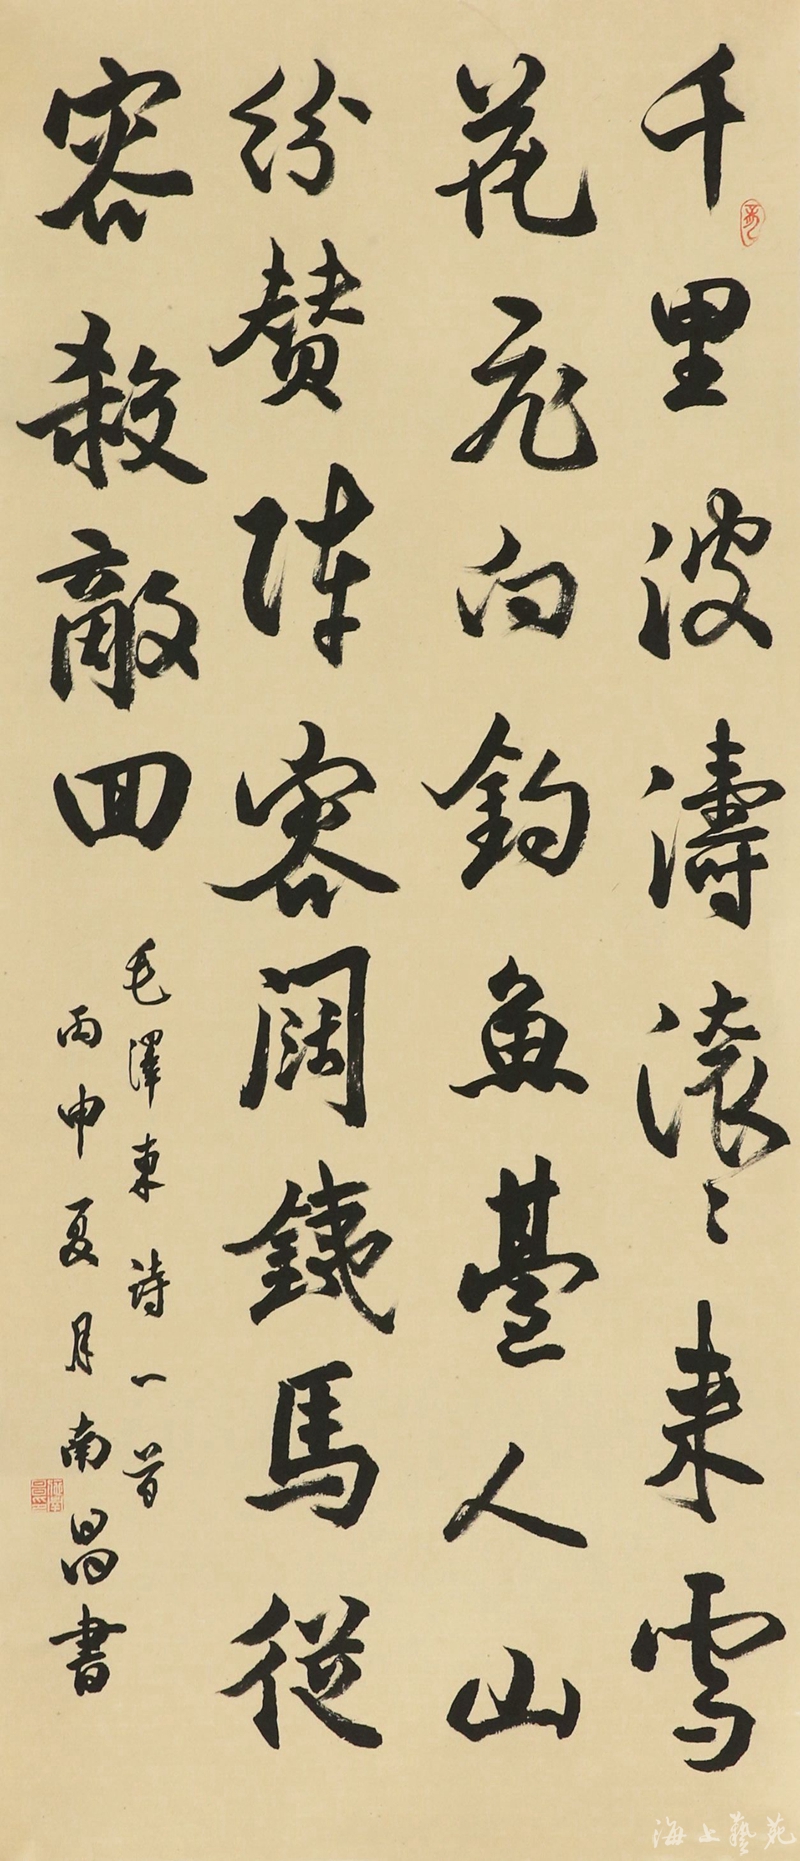 千里波濤滾〻来雪
花飛向釣魚臺人山
紛贊陣容闊鐵馬從
容殺敵回
毛澤東詩一首
丙申夏月南昌書
海上藝苑